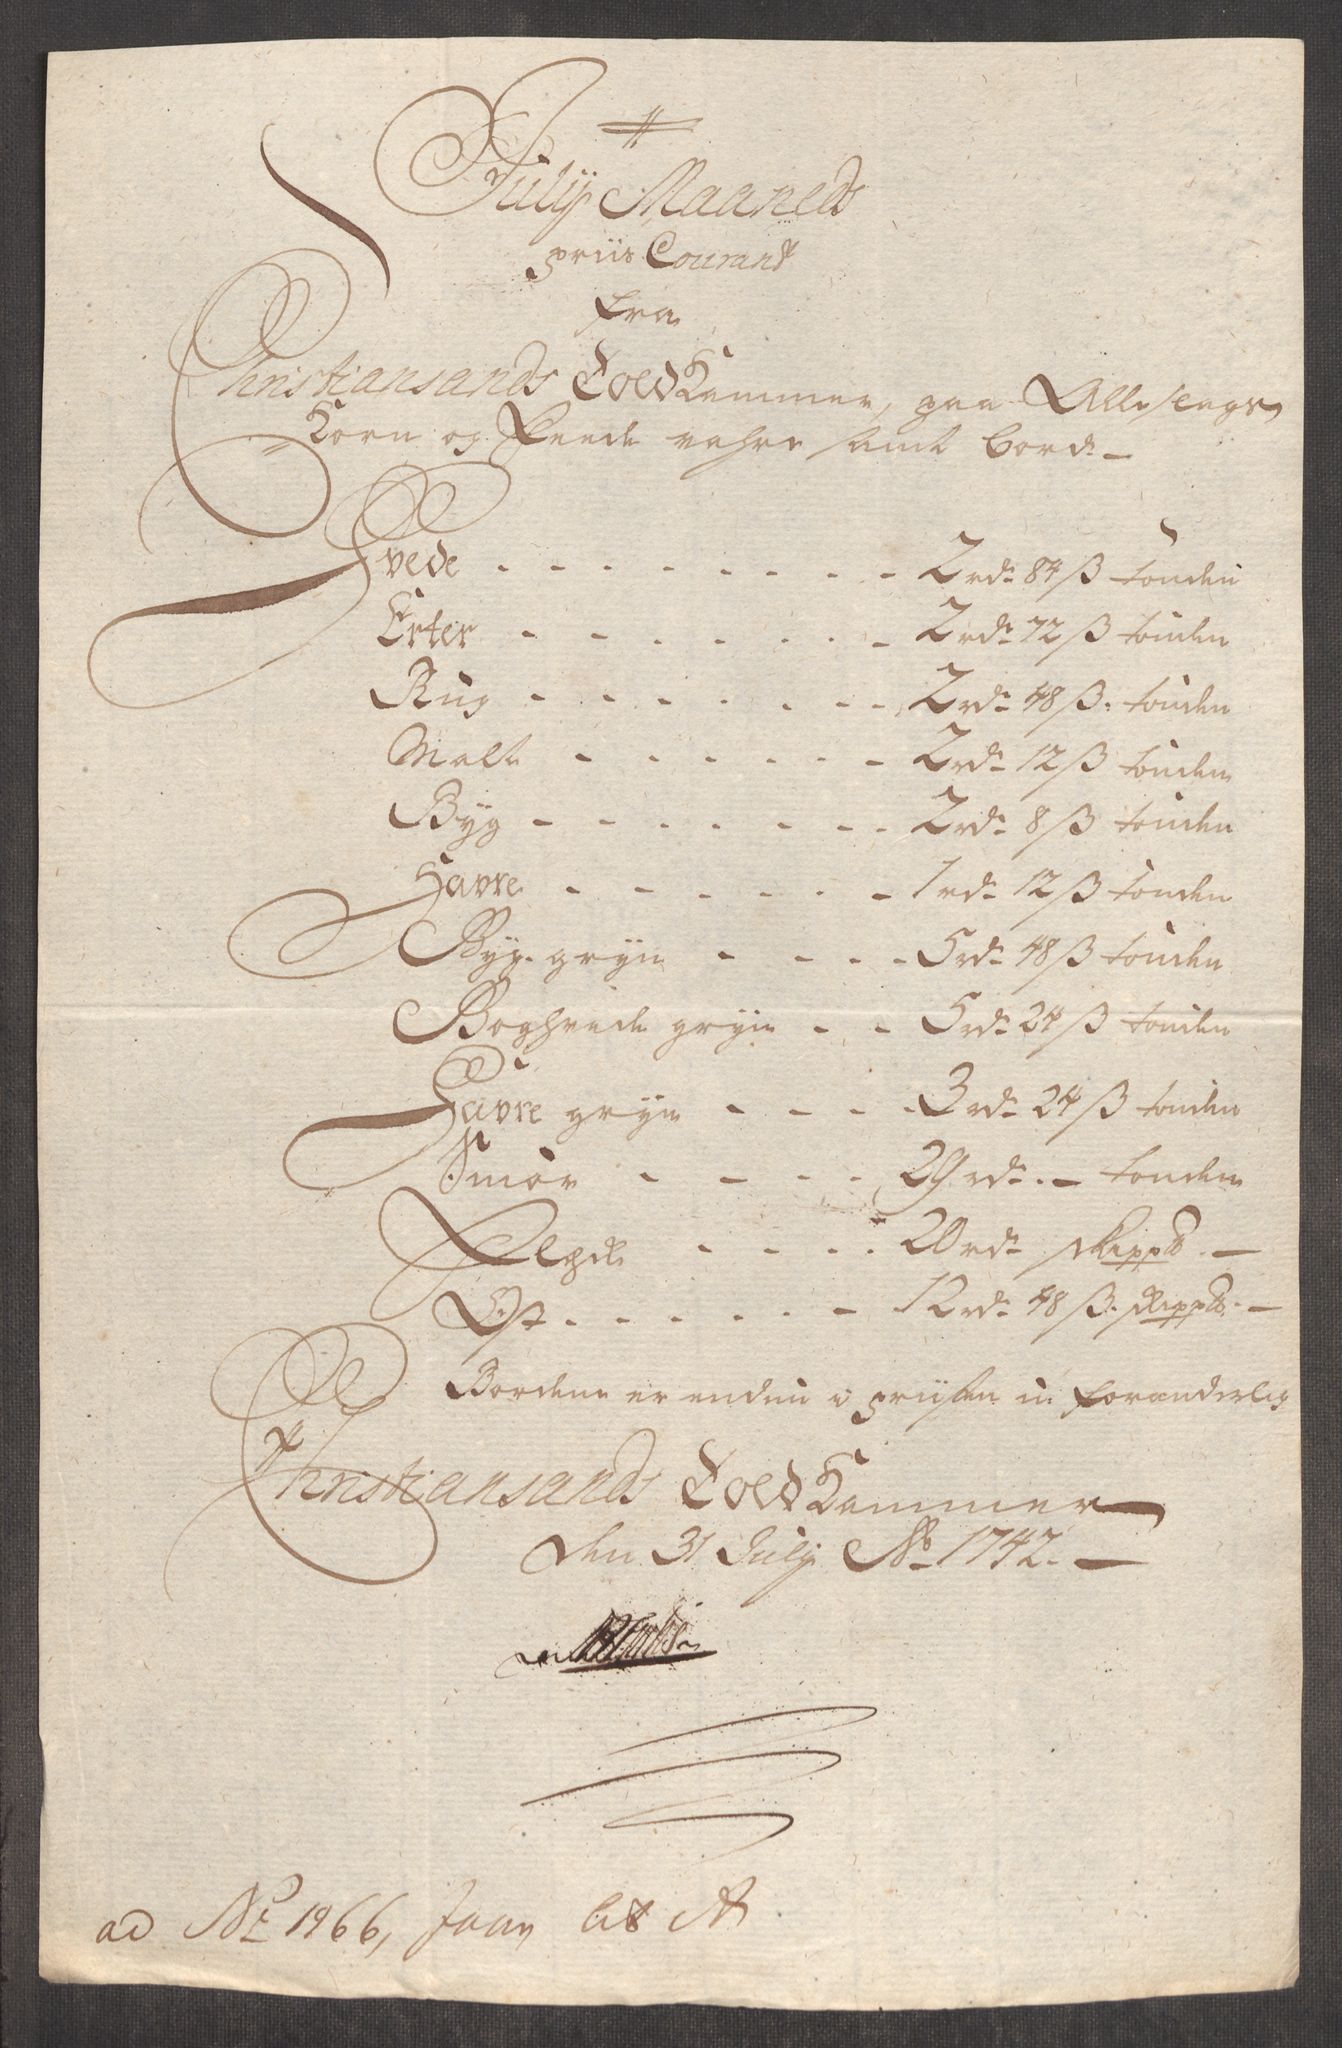 July Maaneds
priis Courant
fra
Christiansands Told Kammer, paa Alle slags
Korn og Feede vahre samt bord.
Hvede - - - - - - - - 2 rdr 84 ß tønden
Erter - - - - - - 2 rdr 72 ß tønden
Rug - - - - - - - 2 rdr 48 ß. tønden
Malt - - - - - - 2 rdr 12 ß tønden
Byg - - - - - - - 2 rdr 8 ß tønden
Havre - - - - - - 1 rdr 12 ß tønden
Byg gryn - - - - 5 rdr 48 ß tønden
Boghvede gryn - - 5 rdr 24 ß tønden
Havre gryn - - - - 3 rdr 24 ß tønden
Smør - - - - 29 rdr. - tønden
- - - - 20 rdr skipp℔ -
Ost - - - - - - 12 rdr 48 ß. skipp℔ -
Bordene er endnu i priisen u-foranderlig
Christiansands Told Kammer
den 31 July Ao 1742. -
ad No 1966, Lit A